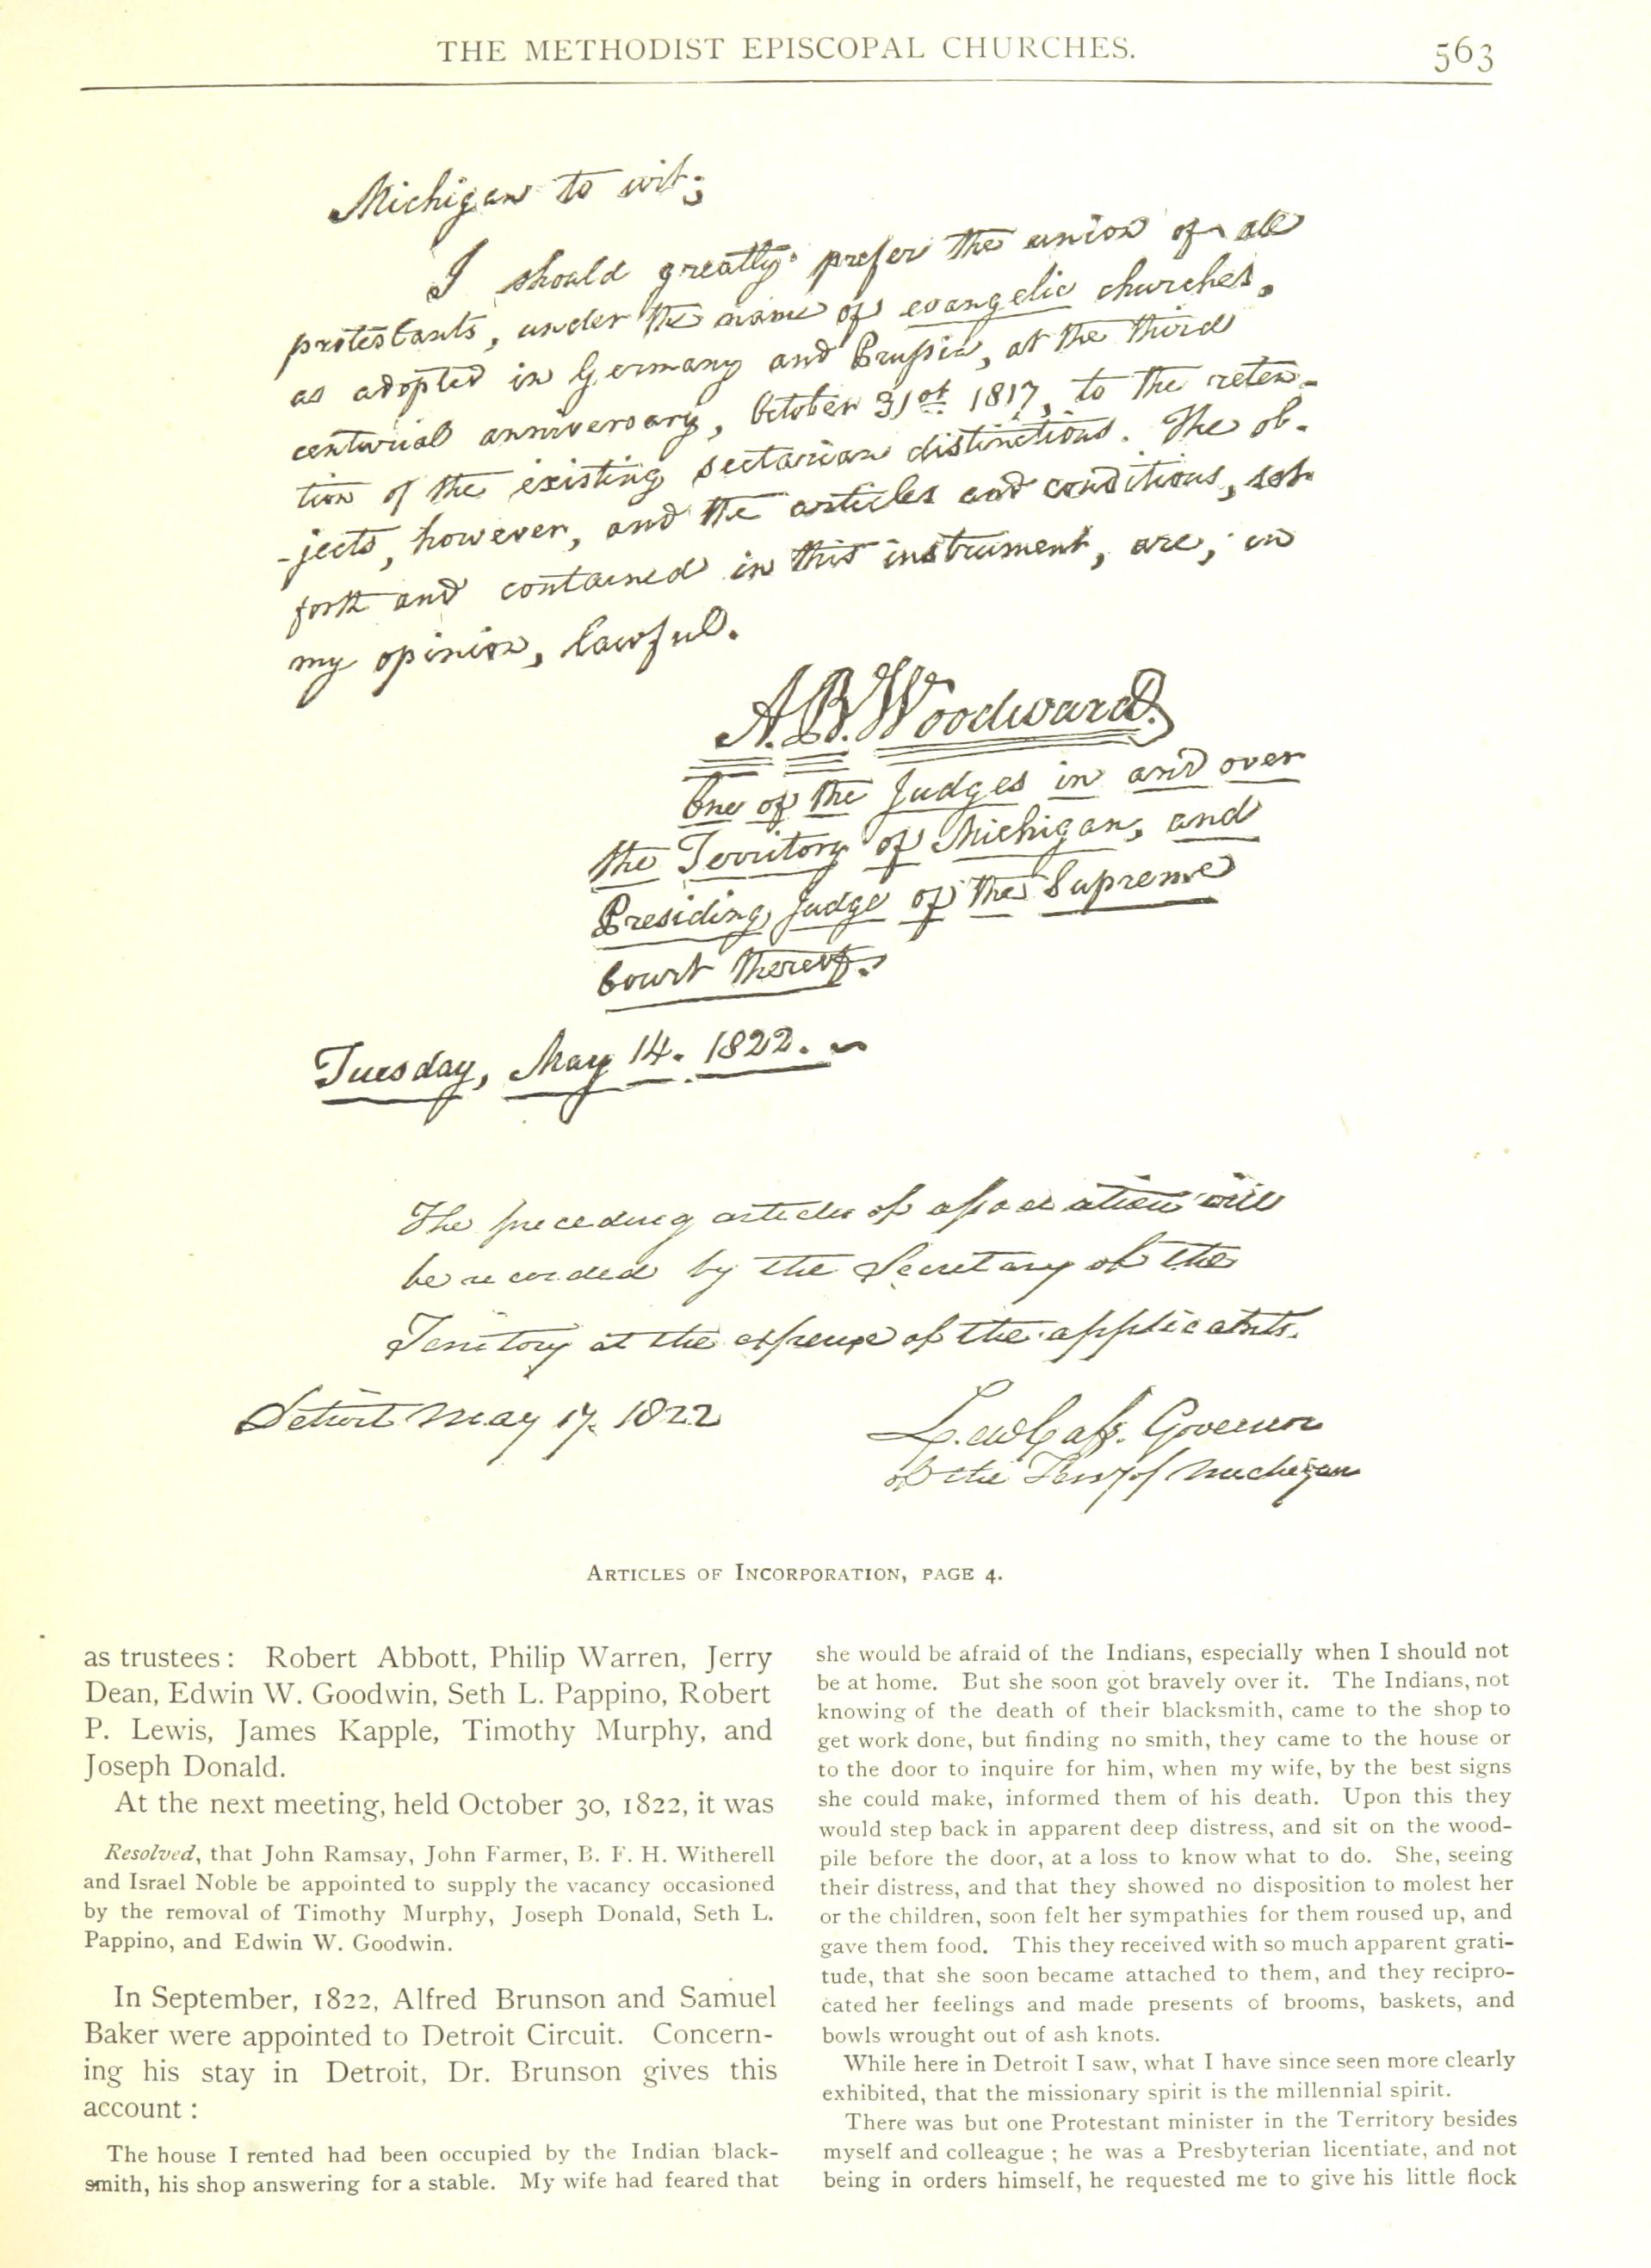 THE METHODIST EPISCOPAL CHURCHES.
563
Michigan to wit;
I should greatly prefer the union of all
protestants, under the name of evangelic churches,
as adopted in Germany and Prussia, at the third
centurial anniversary, October 31st 1817, to the reten-
tion of the existing sectarian distinctions. The ob-
-jects, however, and the articles and conditions, set
forth and contained in this instrument, are, in
my opinion, lawful.
A. B. Woodward.
One of the Judges in and over
the Territory of Michigan, and
Presiding Judge of the Supreme
Court thereof.
Tuesday, May 14. 1822.
The preceding articles of association will
be recorded by the Secretary of the
Territory at the expense of the applicants.
Detroit May 17. 1822
Lew Cass. Governor
of the Terry of Michigan
ARTICLES OF INCORPORATION, PAGE 4.
as trustees: Robert Abbott, Philip Warren, Jerry
Dean, Edwin W. Goodwin, Seth L. Pappino, Robert
P. Lewis, James Kapple, Timothy Murphy, and
Joseph Donald.
At the next meeting, held October 30, 1822, it was
Resolved, that John Ramsay, John Farmer, B. F. H. Witherell
and Israel Noble be appointed to supply the vacancy occasioned
by the removal of Timothy Murphy, Joseph Donald, Seth L.
Pappino, and Edwin W. Goodwin.
In September, 1822, Alfred Brunson and Samuel
Baker were appointed to Detroit Circuit. Concern-
ing his stay in Detroit, Dr. Brunson gives this
account:
The house I rented had been occupied by the Indian black-
smith, his shop answering for a stable. My wife had feared that
she would be afraid of the Indians, especially when I should not
be at home. But she soon got bravely over it. The Indians, not
knowing of the death of their blacksmith, came to the shop to
get work done, but finding no smith, they came to the house or
to the door to inquire for him, when my wife, by the best signs
she could make, informed them of his death. Upon this they
would step back in apparent deep distress, and sit on the wood-
pile before the door, at a loss to know what to do. She, seeing
their distress, and that they showed no disposition to molest her
or the children, soon felt her sympathies for them roused up, and
gave them food. This they received with so much apparent grati-
tude, that she soon became attached to them, and they recipro-
cated her feelings and made presents of brooms, baskets, and
bowls wrought out of ash knots.
While here in Detroit I saw, what I have since seen more clearly
exhibited, that the missionary spirit is the millennial spirit.
There was but one Protestant minister in the Territory besides
myself and colleague; he was a Presbyterian licentiate, and not
being in orders himself, he requested me to give his little flock